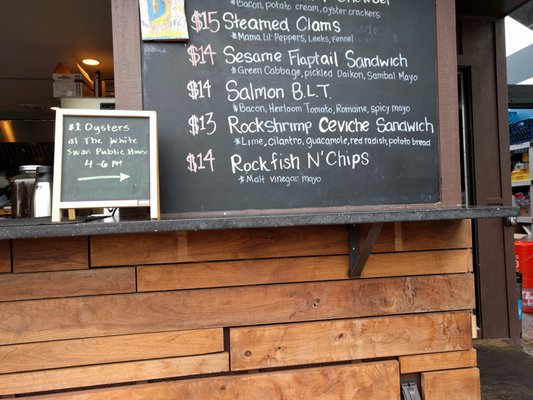 *Bacon, potato cream, oyster crackers
$15 Steamed Clams
*Mama Lil' Peppers, Leeks, fennel
$14 Sesame Flaptail Sandwich
*Green Cabbage, pickled Daikon, Sambal Mayo
$14 Salmon B.L.T.
*Bacon, Heirloom Tomato, Romaine, spicy mayo
$13 Rockshrimp Ceviche Sandwich
*Lime, cilantro, guacamole, red radish, potato bread
$14 Rockfish N' Chips
*Malt vinegar mayo
$1 Oysters
at The White
Swan Public House
4-6 PM